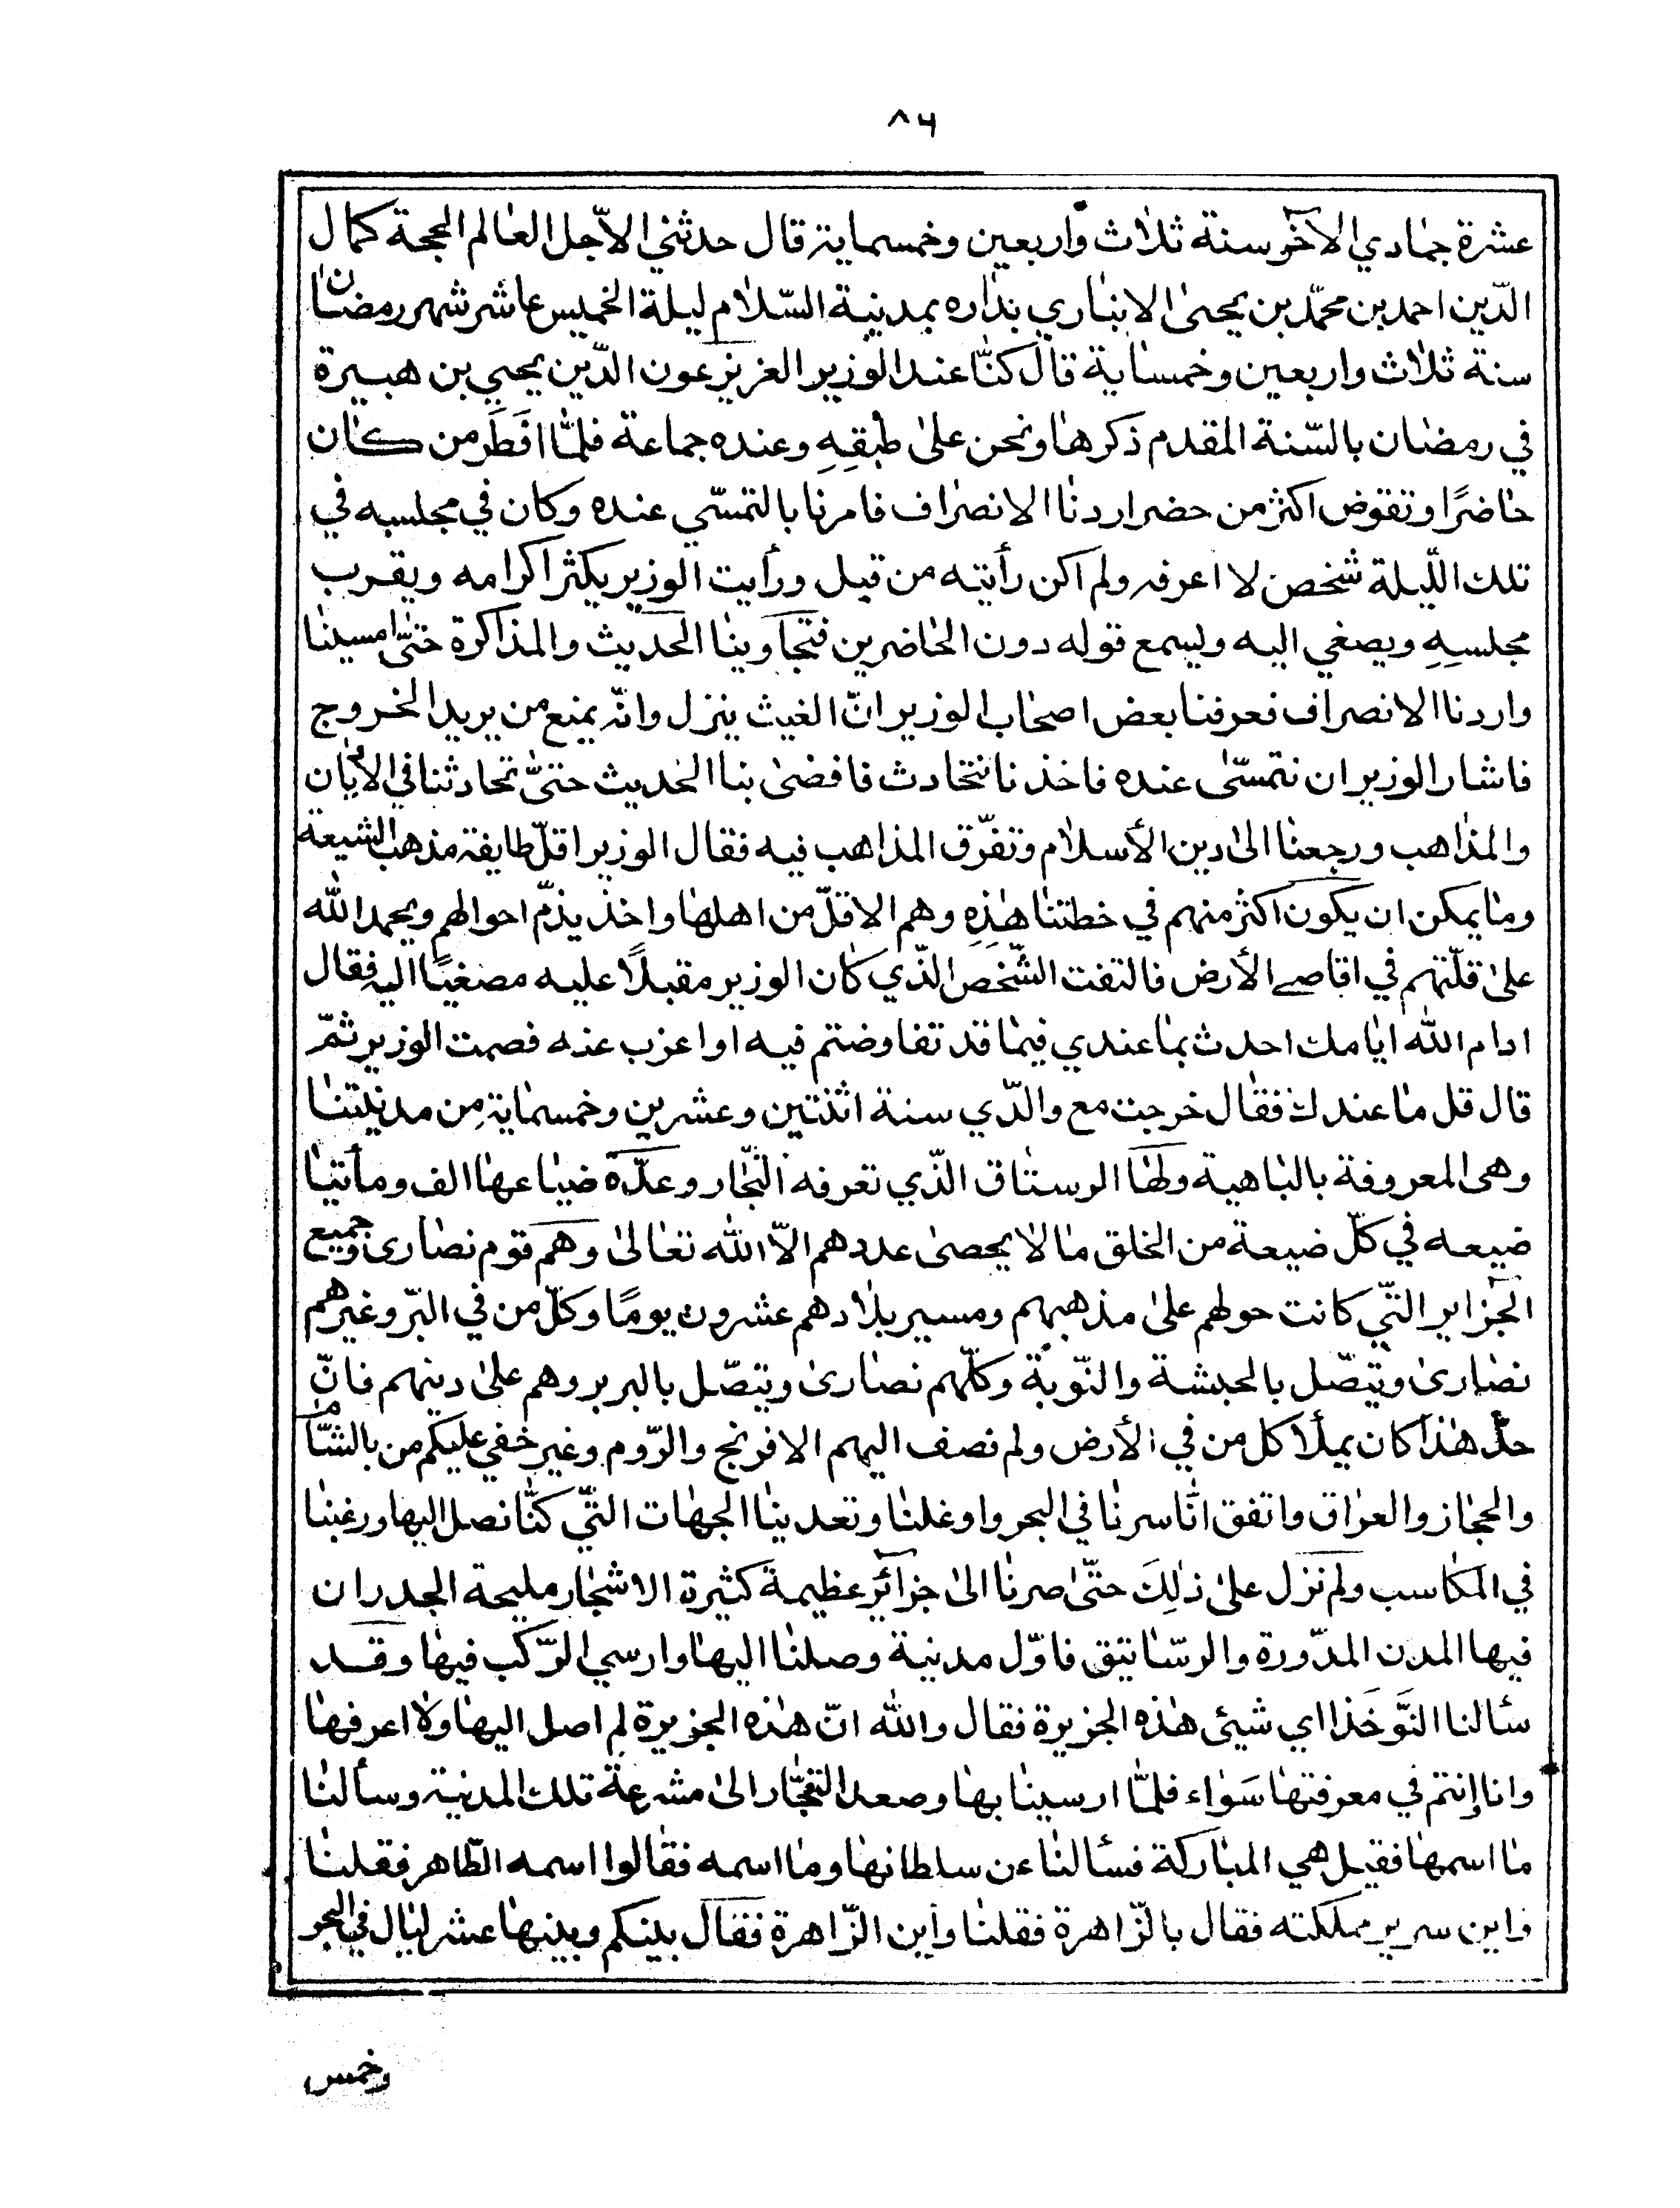 ٨٤
عشرة جمٰادي الآخر سنة ثلاث واربعين وخمسماية قال حدثني الاّجل العٰالم الحجة كمال
الدّين احمد بن محمّد بن يحيىٰ الانبٰاري بدٰاره بمدنية السّلام ليلة الخميس عاشر شهر رمضٰان
سنة ثلاث واربعين وخمسٰاية قال كنّا عند الوزير العزيز عون الدّين يحيي بن هبيرة
في رمضٰان بالسّنة المقدم ذكرهٰا ونحن علىٰ طبقِهِ وعنده جماعة فلمّا افَطَر من كٰان
حٰاضرًا وتقوض اكثر من حضر اردنٰا الانصٰراف فامرنا بالتمسّي عنده وكان في مجلسه في
تلك اللّيلة شخص لا اعرفه ولم اكن رأيته من قبل ورأيت الوزير يكثر اكرامه ويقرب
مجلسهِ ويصغي اليه وليسمع قوله دون الحٰاضرين فتجٰاوينٰا الحديث والمذاكرة حتىّٰ امسينٰا
واردنا الانصراف فعرفنا بعض اصحٰاب الوزير انّ الغيث ينزل وانّه يمنع من يريد الخروج
فاشار الوزير ان نتمسّىٰ عنده فاخذنا نتحٰادث فافضىٰ بنا الحديث حتىّٰ تحادثنا في الأديان
والمذٰاهب ورجعنٰا الىٰ دين الأسلام وتفرّق المذاهب فيه فقال الوزير اقلّ طايفة مذهب الشيعة
ومٰا يمكن ان يكون اكثر منهم في خطتنٰا هٰذِهِ وهم الاقلّ من اهلهٰا واخذ يذمّ احوالهم ويحمد اللّٰه
علىٰ قلّتهم في اقاصي الأرض فالتفت الشّخص الذّي كان الوزير مقبلًا عليه مصغيًا اليه فقال
ادام اللّٰه ايٰامك احدث بمٰا عندي فيمٰا قد تفاوضتم فيه او اعزب عنه فصمت الوزير ثمّ
قال قل مٰا عندك فقٰال خرجت مع والدّي سنة اثنتين وعشرين وخمسمٰاية مِن مدنيتنٰا
وهى المعروفة بالبٰاهية ولهٰا الرستٰاق الذّي تعرفه التجّٰار وعدّة ضيٰاعهٰا الف ومأتيٰا
ضيعه في كلّ ضيعة من الخلق مٰا لا يحصىٰ عددهم الاّ اللّٰه تعٰالىٰ وهم قوم نصٰارى وجميع
الجزاير التّي كانت حولهم علىٰ مذهبهم ومسير بلادهم عشرون يومًا وكلّ من في البّر وغيرهم
نصٰارىٰ وتيصّل بالحبشة والنّوبة وكلّهم نصٰارىٰ ويتصّل بالبربر وهم علىٰ دينهم فانّ
حدّ هٰذا كان بملأ كل من في الأرض ولم نصف اليهم الافرنج والرّوم وغير خفي عليكم من بالشّام
والحجٰاز والعرٰاق واتفق انّا سرنٰا في البحر واوغلنٰا وتعدينٰا الجهٰات التّي كنّا نصل اليها ورغبنٰا
في المكٰاسب ولم نزل علىٰ ذٰلِكَ حتىّٰ صرنٰا الىٰ جزآئر عظيمة كثيرة الاشجٰار مليحة الجدران
فيها المدن المدّورة والرسّاتيق فاوّل مدنية وصلنٰا اليهٰا وارسي الرّكب فيهٰا وقد
سٔالنا النَّوخَذا اي شيئ هٰذه الجزيرة فقال واللّٰه انّ هٰذه الجزيرة لم اصل اليهٰا ولا اعرفهٰا
وانا انتم في معرفتهٰا سَوٰاء فلمّا ارسينٰا بهٰا وصعد التجّٰار الىٰ مشرعة تلك المدنية وسألنٰا
مٰا اسمهٰا فقيل هي المبٰاركة فسٔالنٰا عن سلطانهٰا ومٰا اسمه فقٰالوا اسمه الظّاهر فقلنٰا
واين سرير مملكته فقال بالزّاهرة فقلنٰا وأين الزّاهرة فقٰال بينكم وبينهٰا عشر ليٰال في البحر
وخمس